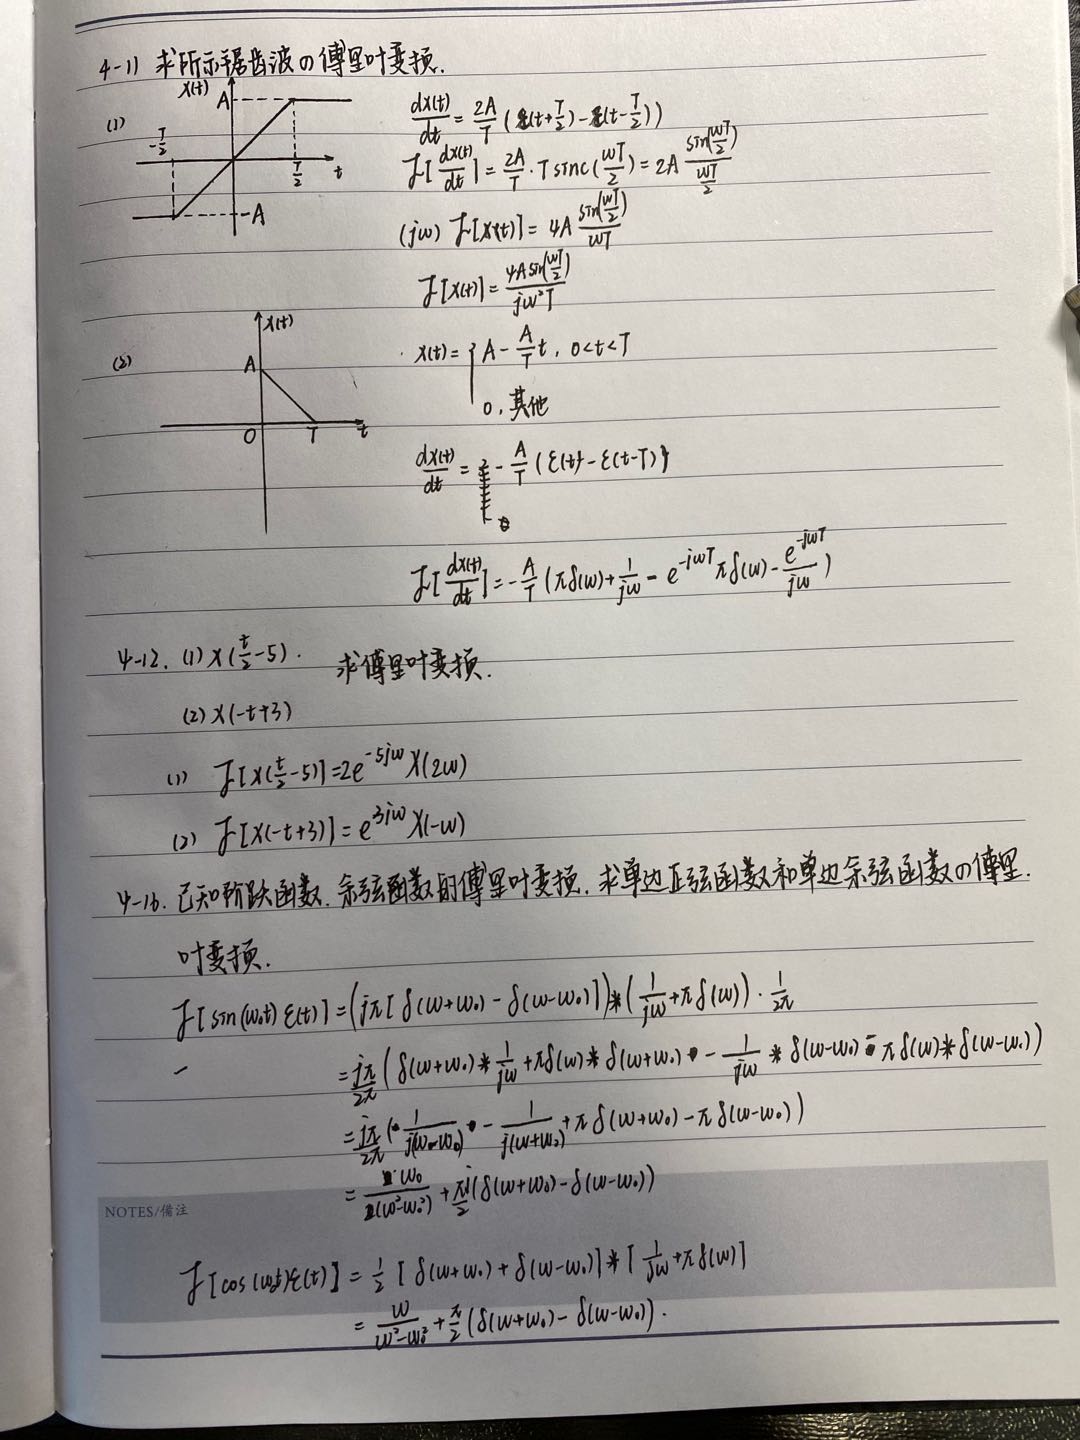 4-11 求所示锯齿波の傅里叶变换.
x(t)
A
(1)
-T/2
T/2
t
-A
dx(t)/dt = 2A/T (ε(t+T/2) - ε(t-T/2))
F[dx(t)/dt] = 2A/T · T sinc(ωT/2) = 2A sin(ωT/2)/(ωT/2)
(jω) F[x(t)] = 4A sin(ωT/2)/ωT
F[x(t)] = 4A sin(ωT/2)/jω²T
(2)
x(t)
A
O
T
t
x(t) = { A - A/T t, 0<t<T
0, 其他
dx(t)/dt = - A/T (ε(t) - ε(t-T))
F[dx(t)/dt] = -A/T (πδ(ω) + 1/jω - e^{-jωT} πδ(ω) - e^{-jωT}/jω)
4-12. (1) x(t/2 - 5). 求傅里叶变换.
(2) x(-t+3)
(1) F[x(t/2 - 5)] = 2e^{-5jω} X(2ω)
(2) F[x(-t+3)] = e^{3jω} X(-ω)
4-16. 已知阶跃函数. 余弦函数的傅里叶变换. 求单边正弦函数和单边余弦函数の傅里.
叶变换.
F[sin(ω₀t) ε(t)] = (jπ[δ(ω+ω₀) - δ(ω-ω₀)]) * (1/jω + πδ(ω)) · 1/2π
= jπ/2π (δ(ω+ω₀) * 1/jω + πδ(ω) * δ(ω+ω₀) - 1/jω * δ(ω-ω₀) - πδ(ω) * δ(ω-ω₀))
= jπ/2π (1/j(ω-ω₀) - 1/j(ω+ω₀) + πδ(ω+ω₀) - πδ(ω-ω₀))
= ω₀/(ω²-ω₀²) + πj/2 (δ(ω+ω₀) - δ(ω-ω₀))
NOTES/備注
F[cos(ω₀t) ε(t)] = 1/2 [δ(ω+ω₀) + δ(ω-ω₀)] * [1/jω + πδ(ω)]
= ω/(ω²-ω₀²) + π/2 (δ(ω+ω₀) - δ(ω-ω₀)).